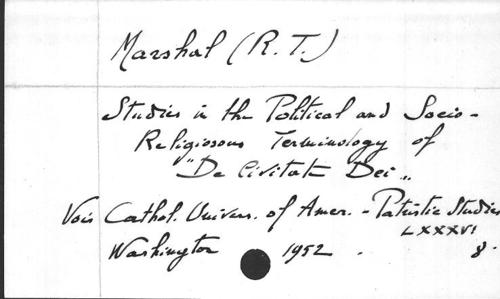 Marshal (R. T.)
Studies in the Political and Socio-
Religiosous Terminology of
"De Civitate Dei"
Vois Cathol. Univers. of Amer. - Patristic Studies
LXXXVI
Washington 1952. 8°